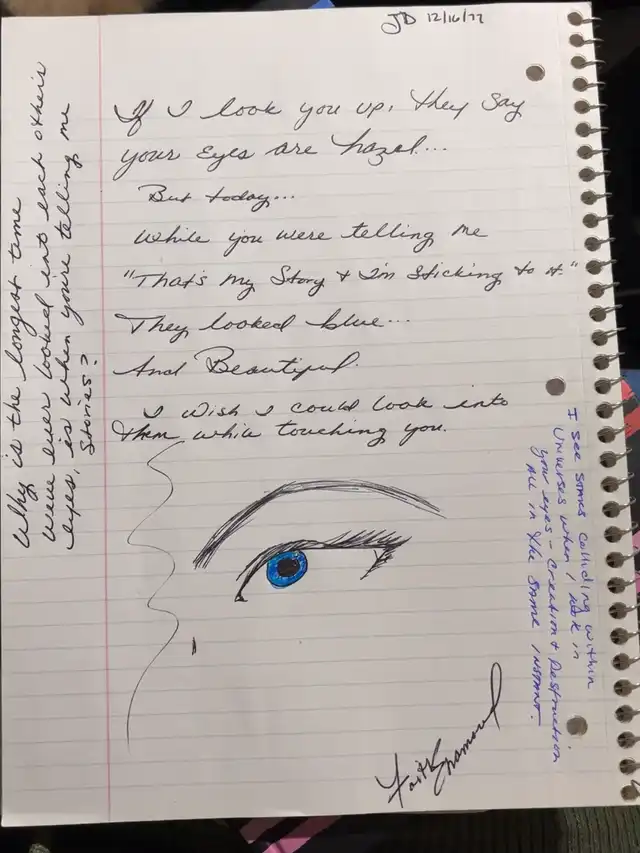 JD 12/16/22
If I look you up, they say
your Eyes are hazel...
But today...
While you were telling me
"That's my Story & I'm Sticking to it."
They looked blue...
And Beautiful.
I wish I could look into
them while touching you.
Why is the longest time
we've ever looked into each other's
eyes, is when you're telling me
Stories?
I see stars colliding within
Universes when I look in
your eyes - Creation & Destruction
All in the same instant.
Faith